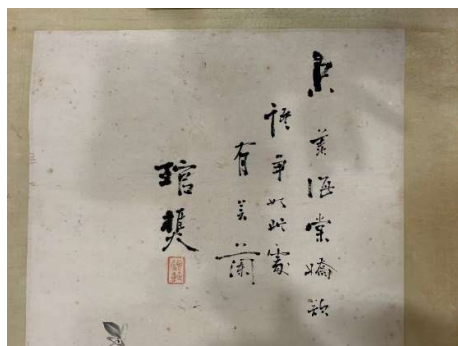 羡海棠嬌欲
語爭如此處
有蘭
琯樊